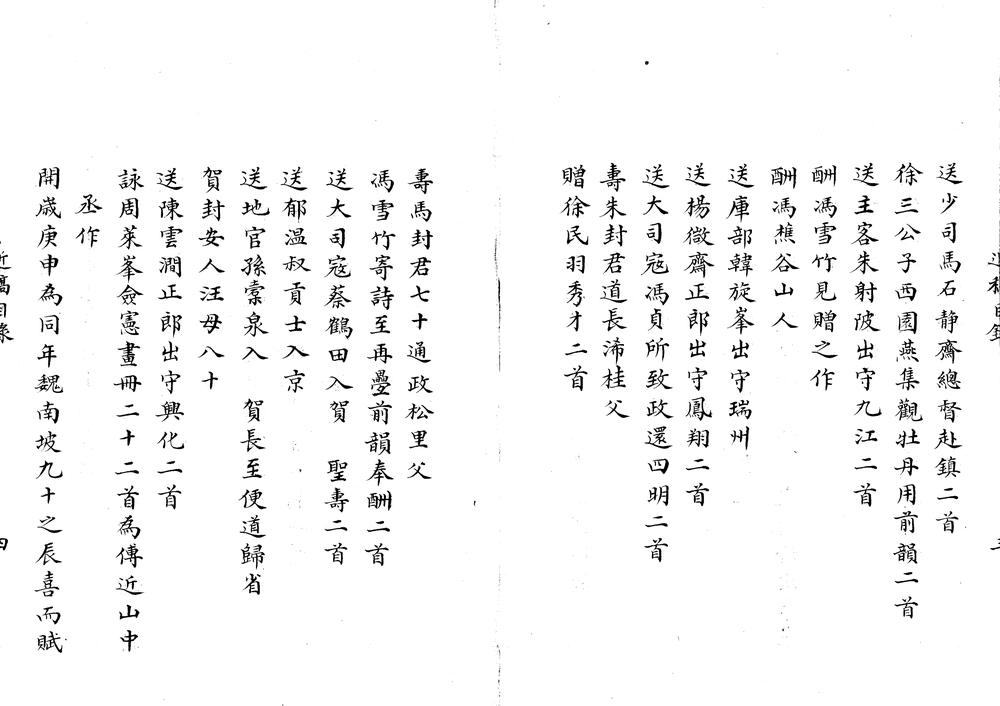 送少司馬石静齋總督赴鎮二首
徐三公子西園燕集觀牡丹用前韻二首
送主客朱射陂出守九江二首
酬馮雪竹見贈之作
酬馮樵谷山人
送庫部韓旋峯出守瑞州
送楊徵齋正郎出守鳳翔二首
送大司寇馮貞所致政還四明二首
壽朱封君道長沛桂父
贈徐民羽秀才二首
壽馬封君七十通政松里父
馮雪竹寄詩至再疊前韻奉酬二首
送大司寇蔡鶴田入賀 聖壽二首
送郁温叔貢士入京
送地官孫雲泉入 賀長至便道歸省
賀封安人汪母八十
送陳雲澗正郎出守興化二首
詠周萊峯僉憲畫冊二十二首為傅近山中
丞作
開歲庚申為同年魏南坡九十之辰喜而賦
近稿目錄
四